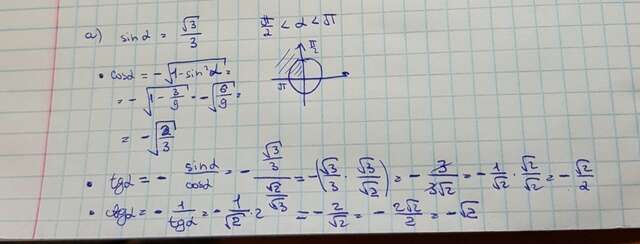 a) sin α = √3/3    π/2 < α < π
• cos α = -√(1-sin²α) =
= -√(1 - 3/9) = -√(6/9) =
= -√(2/3)
π/2
π
• tg α = - sin α/cos α = - (√3/3)/(√2/√3) = -(√3/3 · √3/√2) = - 3/(3√2) = - 1/√2 · √2/√2 = - √2/2
• ctg α = - 1/tg α = - 1/√2 · 2 = - 2/√2 = - 2√2/2 = -√2